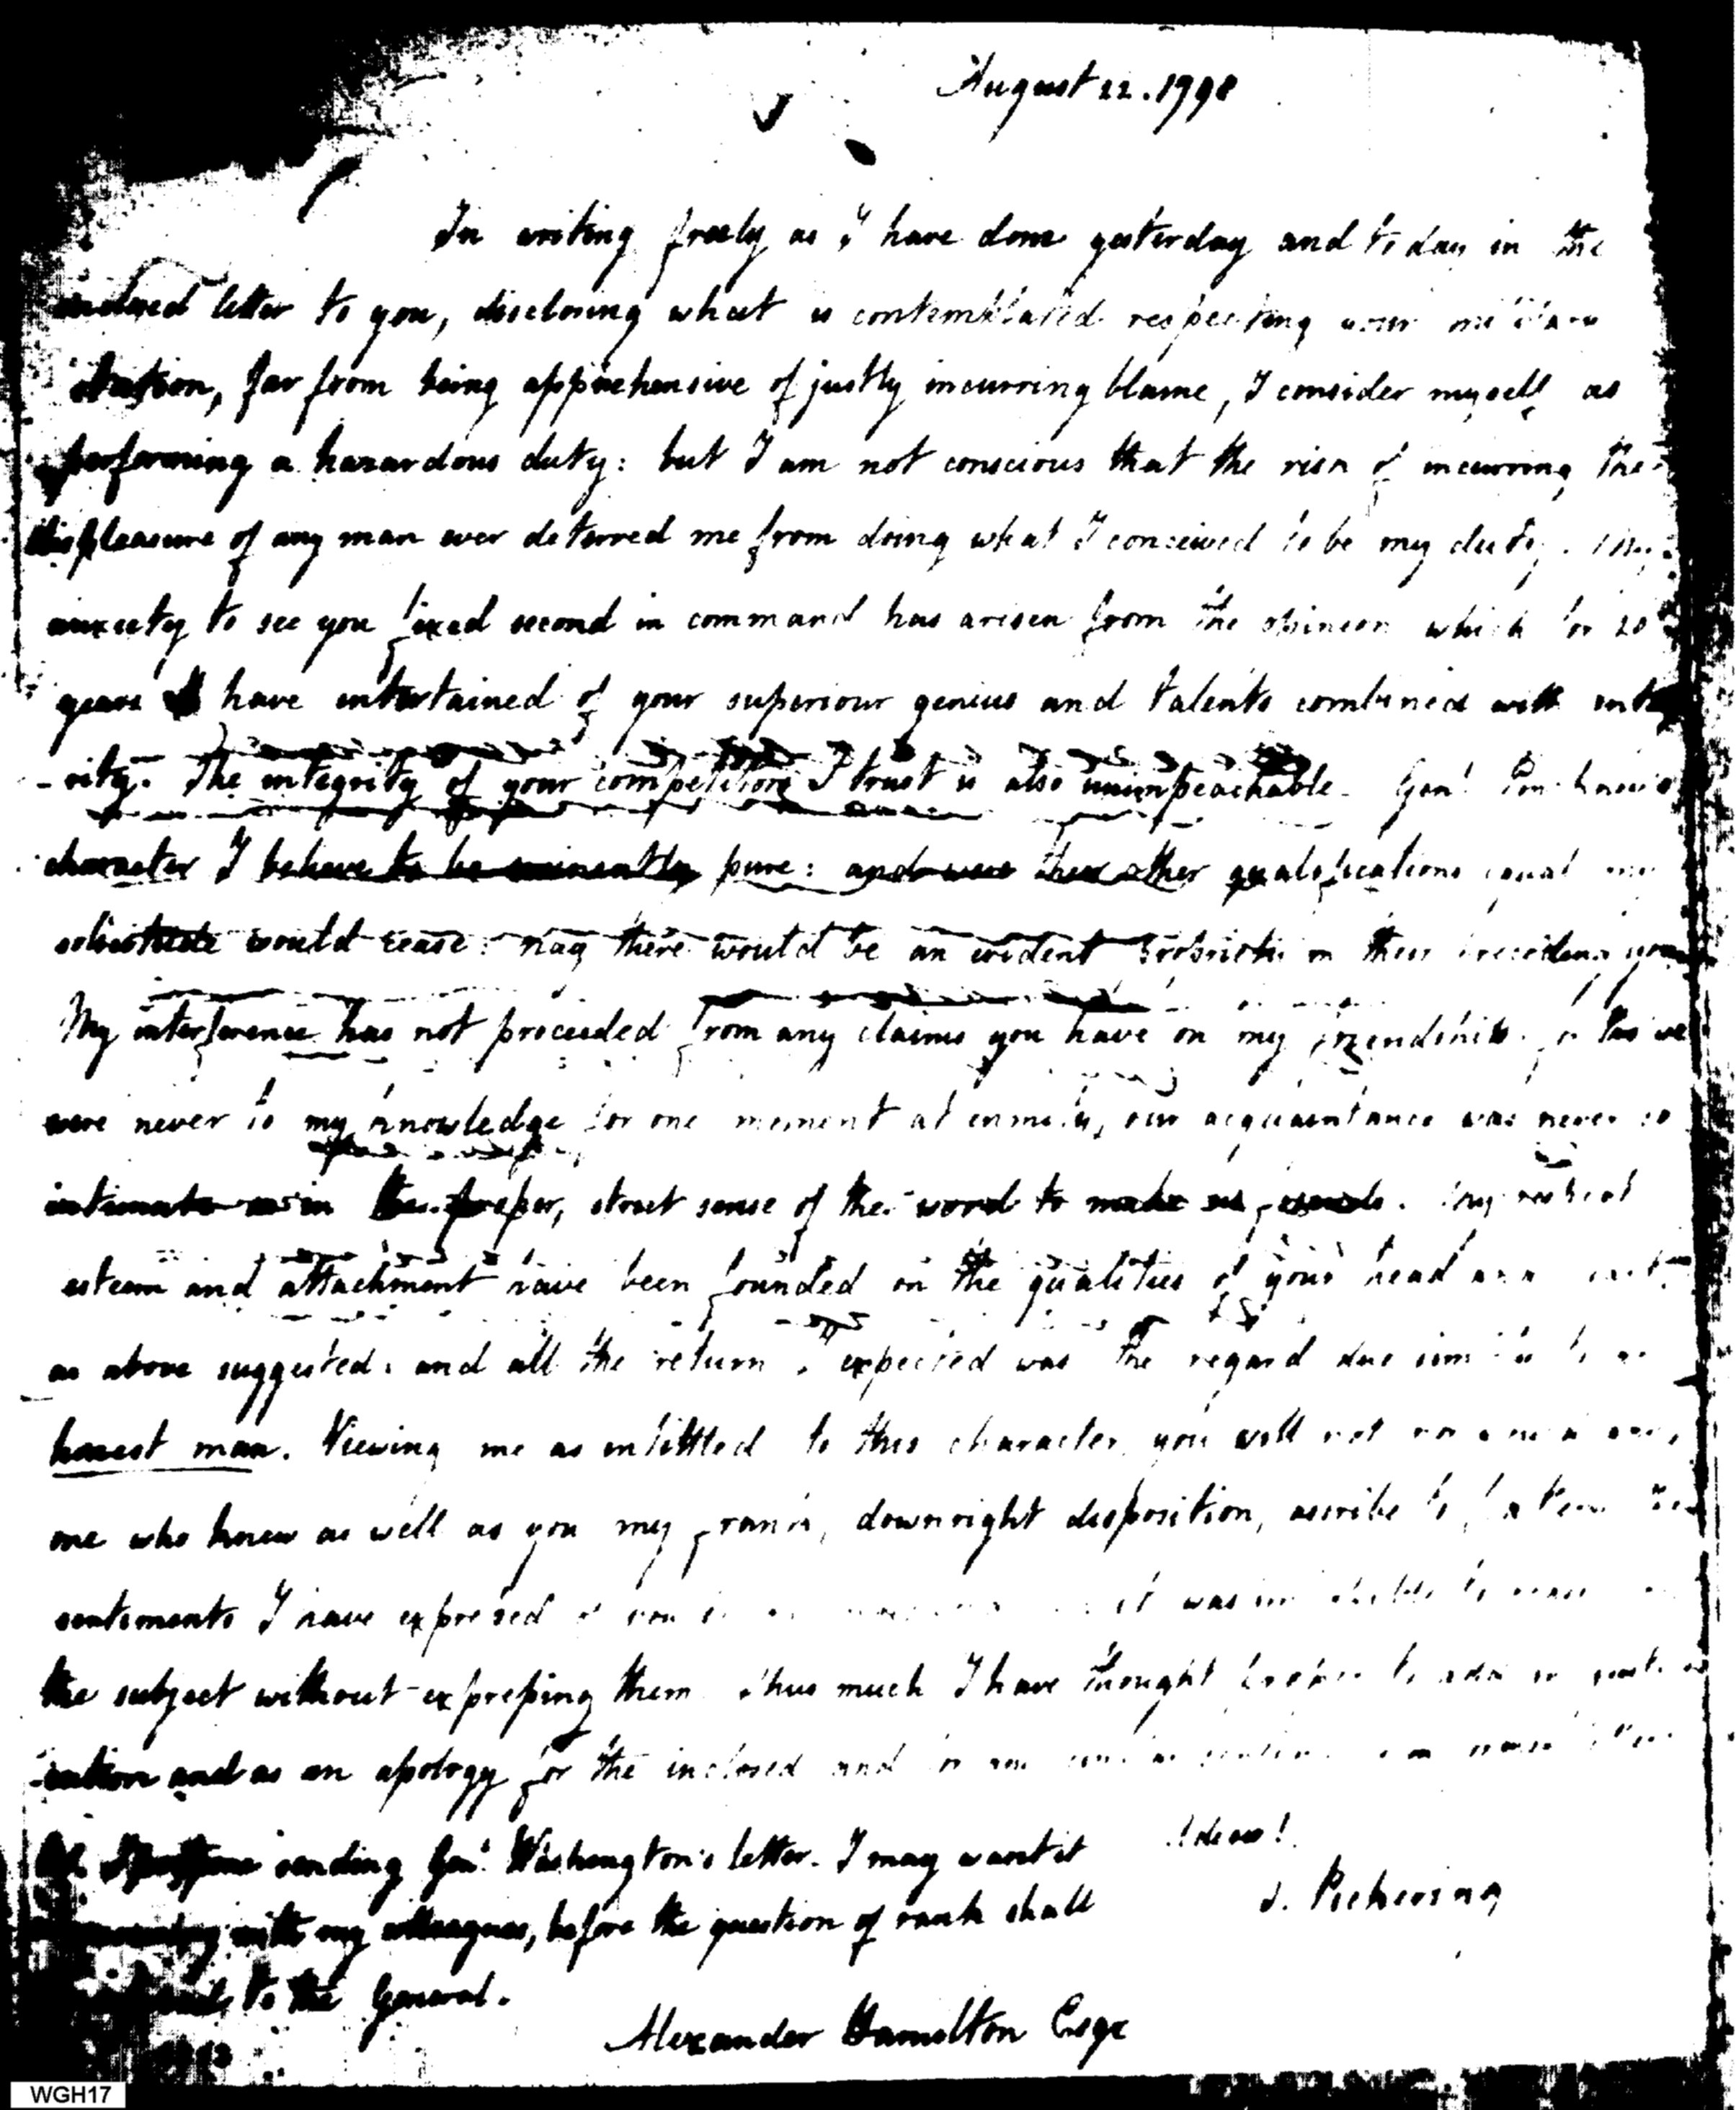 August 22. 1798
In writing freely as I have done yesterday and to day in the
inclosed letter to you, disclosing what is contemplated respecting your military
station, far from being apprehensive of justly incurring blame, I consider myself as
performing a hazardous duty: but I am not conscious that the risk of incurring the
displeasure of any man ever deterred me from doing what I conceived to be my duty. My
anxiety to see you fixed second in command has arisen from the opinion which for 20
years I have entertained of your superiour genius and talents combined with integ
-rity. The integrity of your competitors I trust is also unimpeachable. Genl. Knox's
character I believe to be eminently pure: and were their other qualifications equal my
solicitude would cease: nay there would be an evident propriety in their preceding you
My interference has not proceeded from any claims you have on my friendship. for tho' we
were never to my knowledge for one moment at enmity, our acquaintance was never so
intimate as in the proper, strict sense of the word to make us friends. My respect
esteem and attachment have been founded on the qualities of your head and heart
as above suggested: and all the return I expected was the regard due simply to an
honest man. Viewing me as intittled to this character, you will not nor can any
one who knew as well as you my frank, downright disposition, ascribe to the
sentiments I have expressed of you it was impossible to
the subject without expressing them. Thus much I have thought proper to add
and as an apology for the inclosed and
sending Genl. Washington's letter. I may want it
Adieu!
with my colleagues, before the question of rank shall
T. Pickering
to the General.
Alexander Hamilton Esqr
WGH17